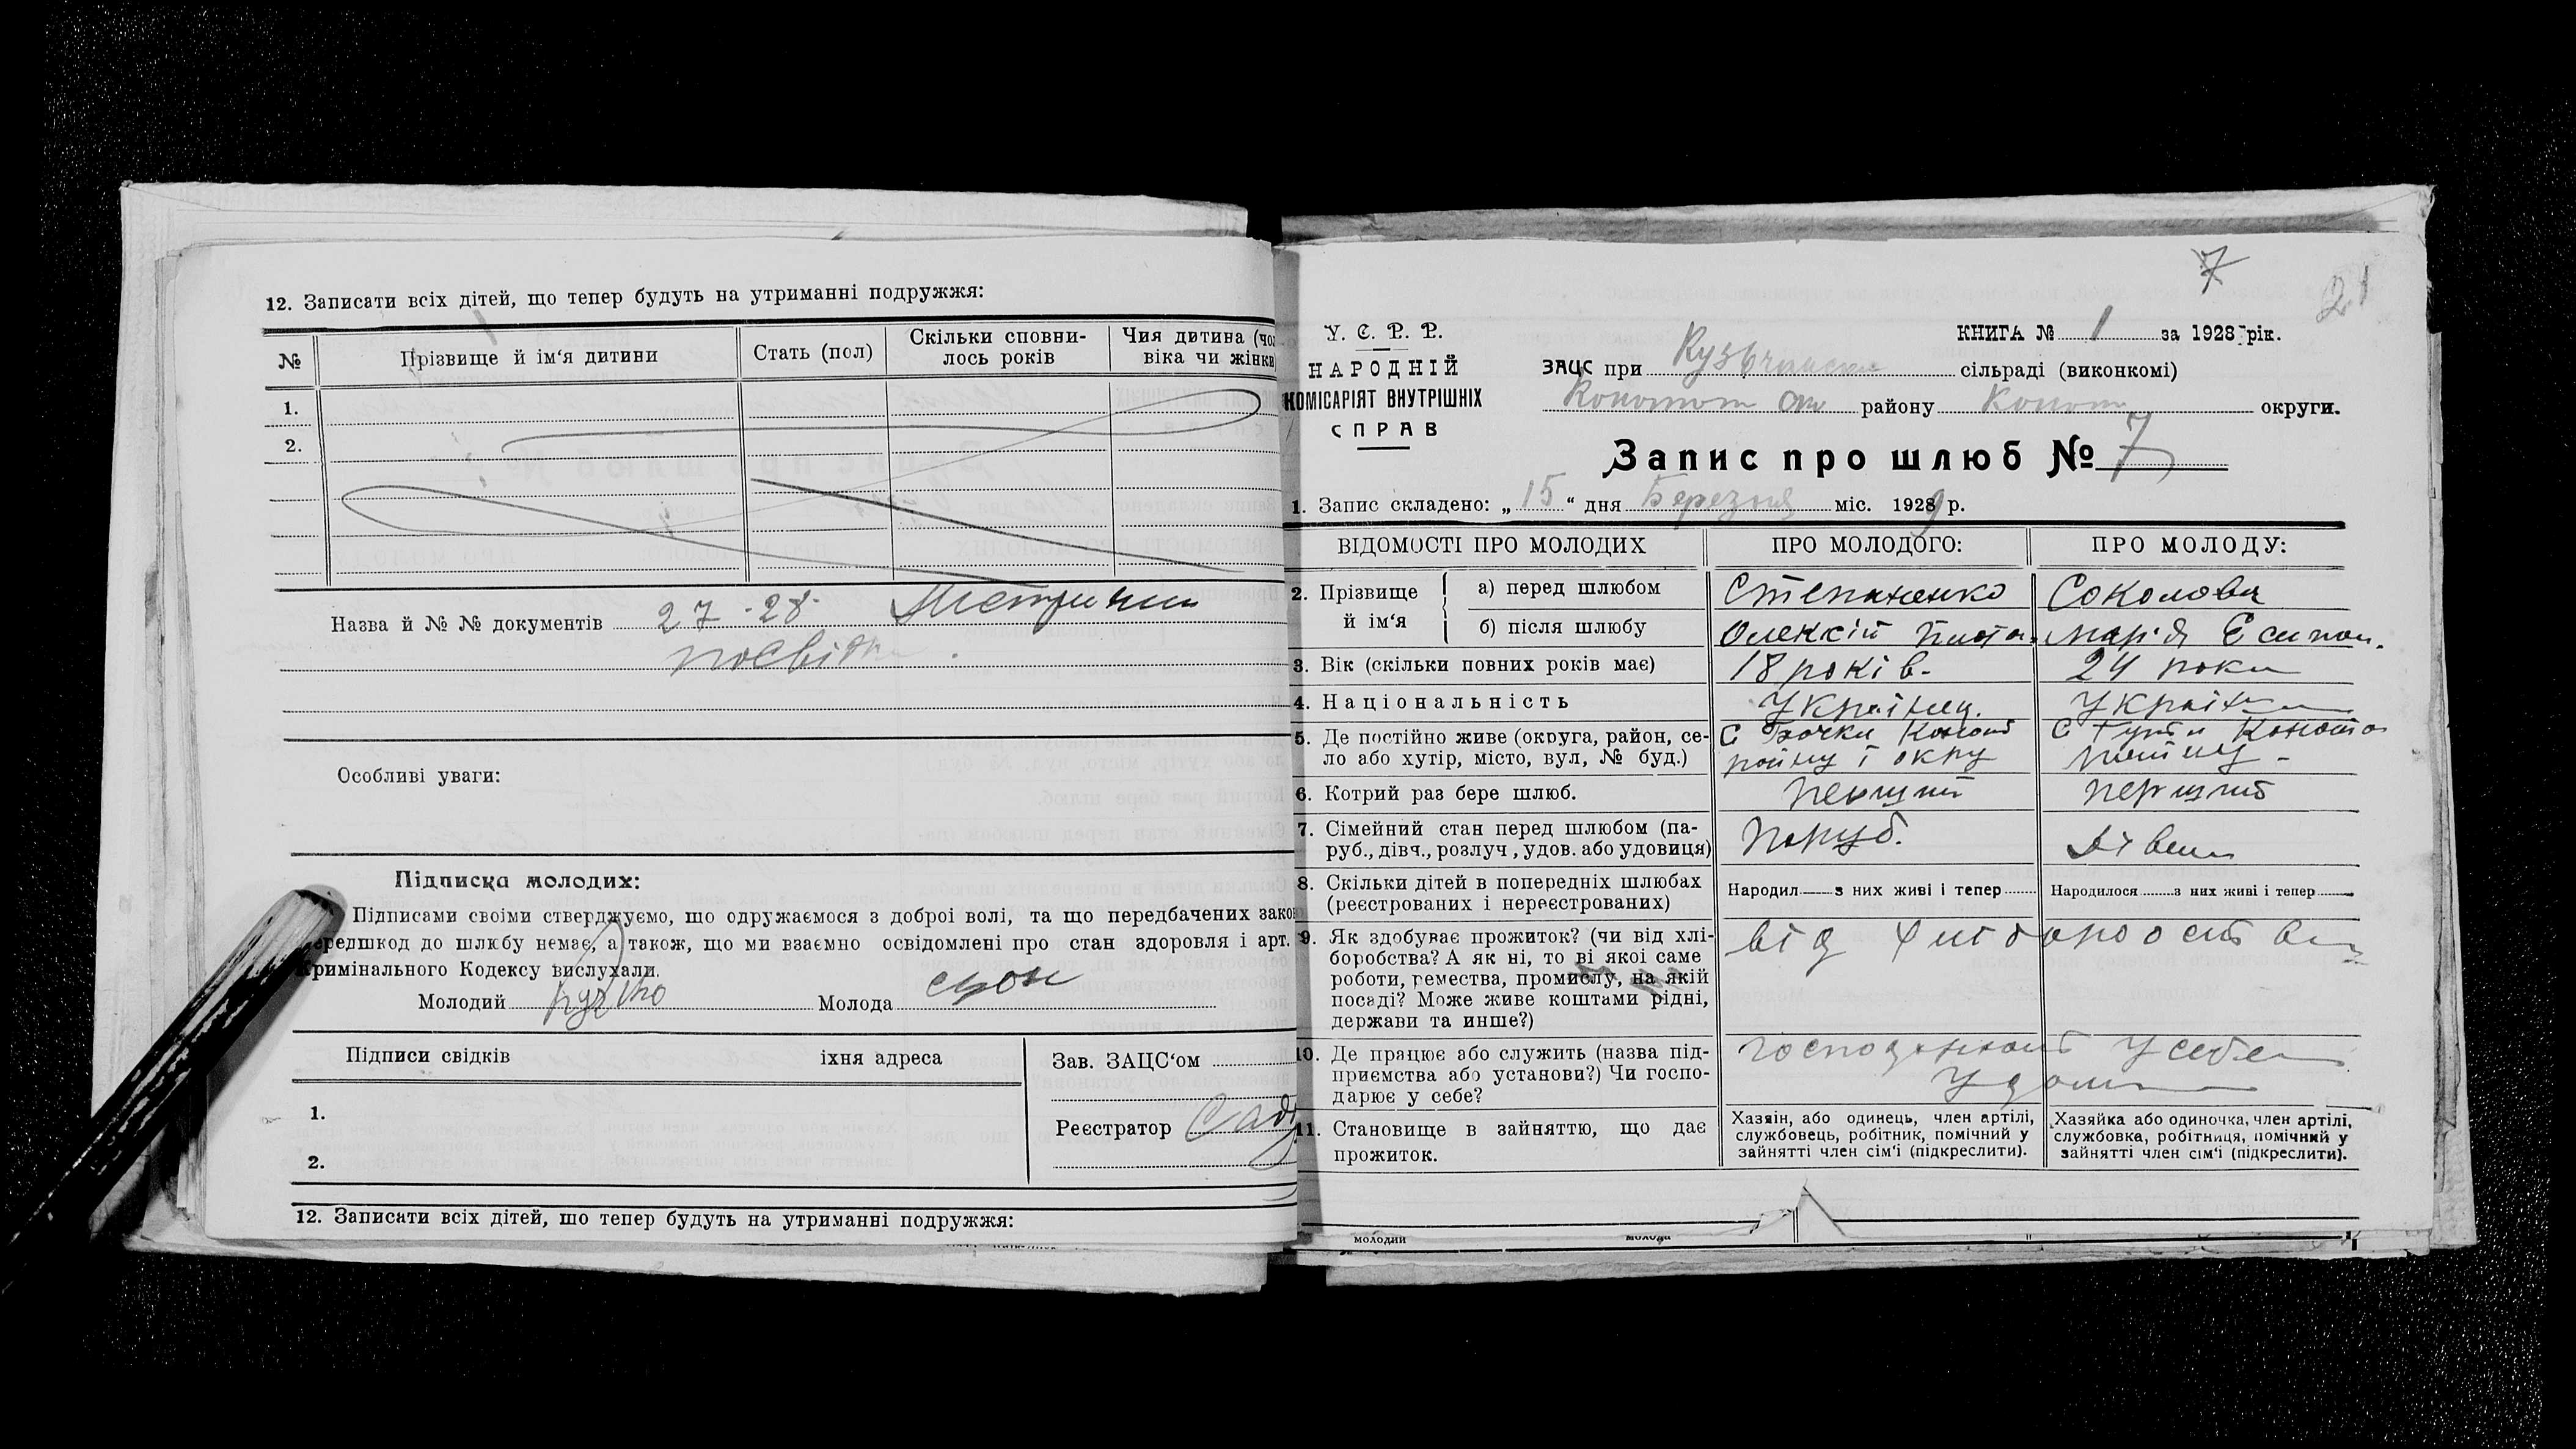 12. Записати всіх дітей, що тепер будуть на утриманні подружжя:
№ Прізвище й ім'я дитини Стать (пол) Скільки сповни-лось років Чия дитина (чо віка чи жінки
1.
2.
Назва й № № документів 27-28
Особливі уваги:
Підписка молодих:
Підписами своїми стверджуємо, що одружаємося з доброї волі, та що передбачених зако
ередшкод до шлюбу немає, а також, що ми взаємно освідомлені про стан здоровля і арт.
римінального Кодексу вислухали.
Молодий Молода
Підписи свідків їхня адреса Зав. ЗАЦС'ом
1.
Реєстратор
2.
12. Записати всіх дітей, шо тепер будуть на утриманні подружжя:
7
21
У. С. Р. Р.
НАРОДНІЙ
КОМІСАРІЯТ ВНУТРІШНІХ
СПРАВ
КНИГА № 1 за 1928 рік.
ЗАЦС при сільраді (виконкомі)
району Коноп округи.
Запис про шлюб № 7
1. Запис складено: „15" дня Березня міс. 1929 р.
ВІДОМОСТІ ПРО МОЛОДИХ ПРО МОЛОДОГО: ПРО МОЛОДУ:
2. Прізвище й ім'я а) перед шлюбом Степаненко Соколова
б) після шлюбу Олексій Марія Есипов.
3. Вік (скільки повних років має) 18 років. 24 роки
4. Національність Українец.
5. Де постійно живе (округа, район, се-
ло або хутір, місто, вул, № буд.)
С Бочки Коноп
райну і окру
С Гути Конотоп
райну -
6. Котрий раз бере шлюб. перший перший
7. Сімейний стан перед шлюбом (па-
руб., дівч., розлуч, удов. або удовиця)
Паруб.
8. Скільки дітей в попередніх шлюбах
(реєстрованих і нереєстрованих)
Народил з них живі і тепер
Народилося з них живі і тепер
9. Як здобуває прожиток? (чи від хлі-
боробства? А як ні, то ві якої саме
роботи, ремества, промислу, на якій
посаді? Може живе коштами рідні,
держави та инше?)
від хліборобства
10. Де працює або служить (назва під-
приємства або установи?) Чи госпо-
дарює у себе?
у себе
у дома
11. Становище в зайняттю, що дає
прожиток.
Хазяін, або одинець, член артілі,
службовець, робітник, помічний у
зайнятті член сім'ї (підкреслити).
Хазяйка або одиночка, член артілі,
службовка, робітниця, помічний у
зайнятті член сім'ї (підкреслити).
молодий молода